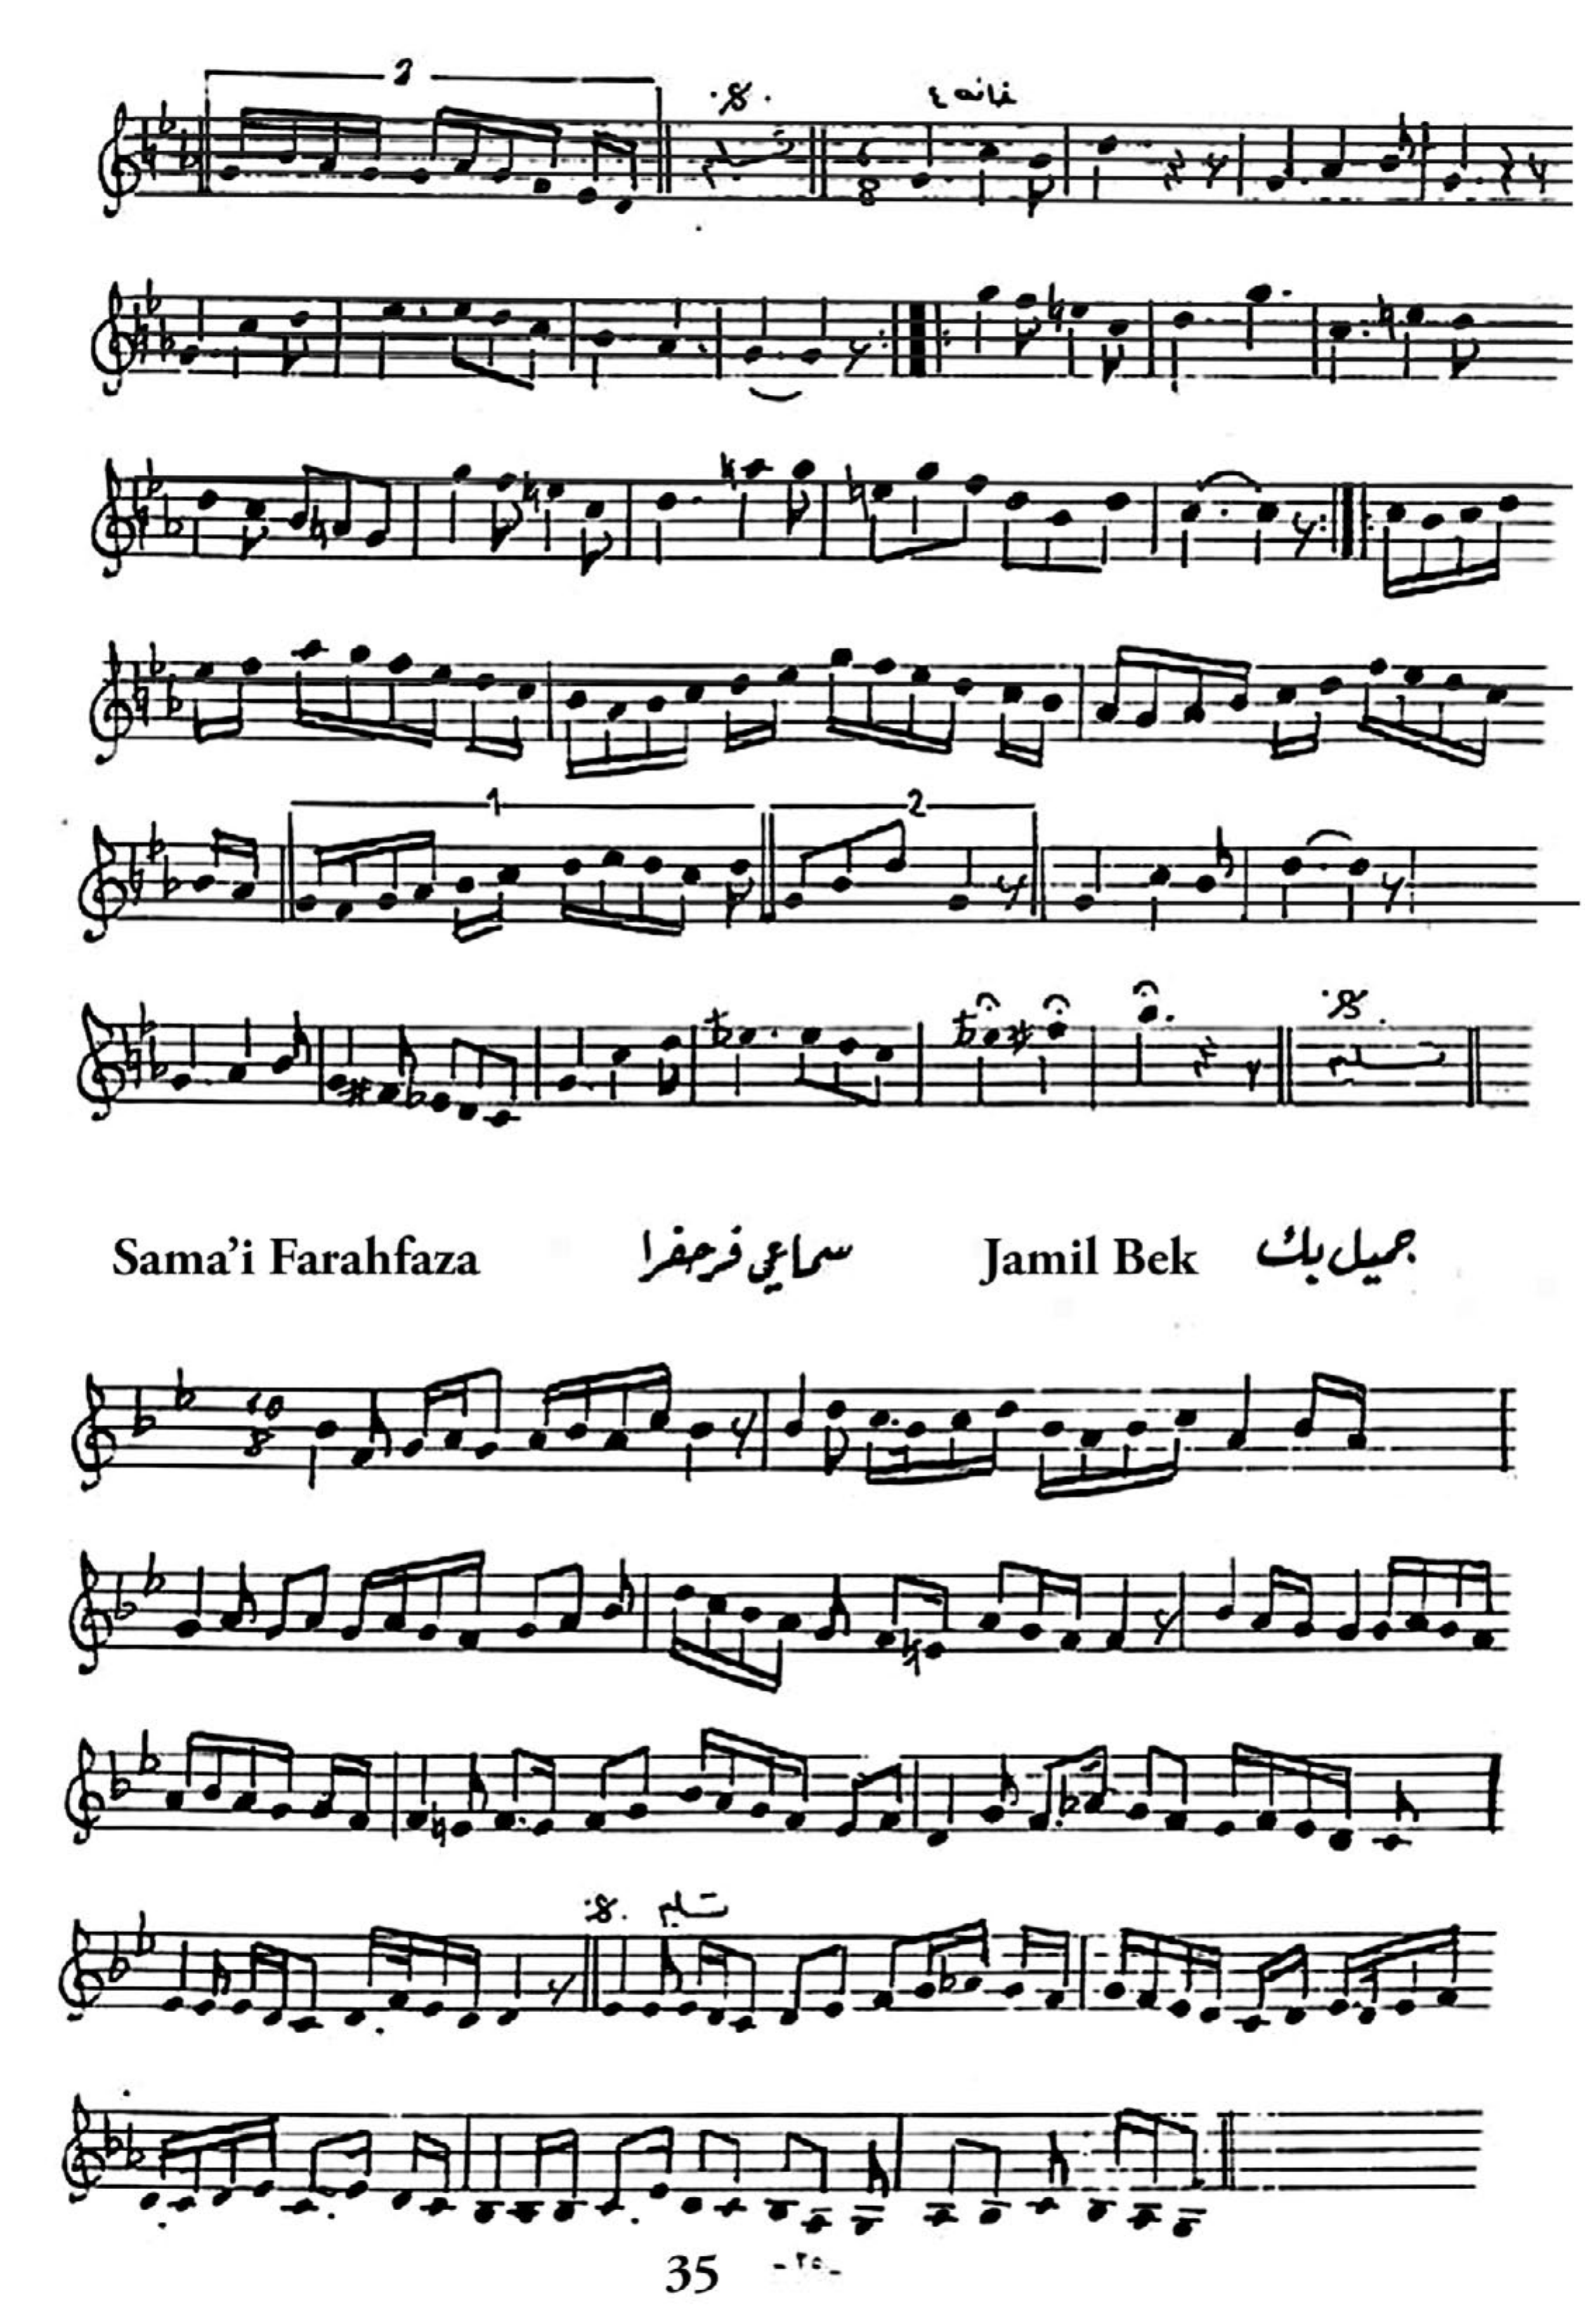 2
خانه ٤
6
8
1 2
Sama’i Farahfaza سماعي فرحفزا Jamil Bek جميل بك
10
8
تسليم
35 -٣٥-